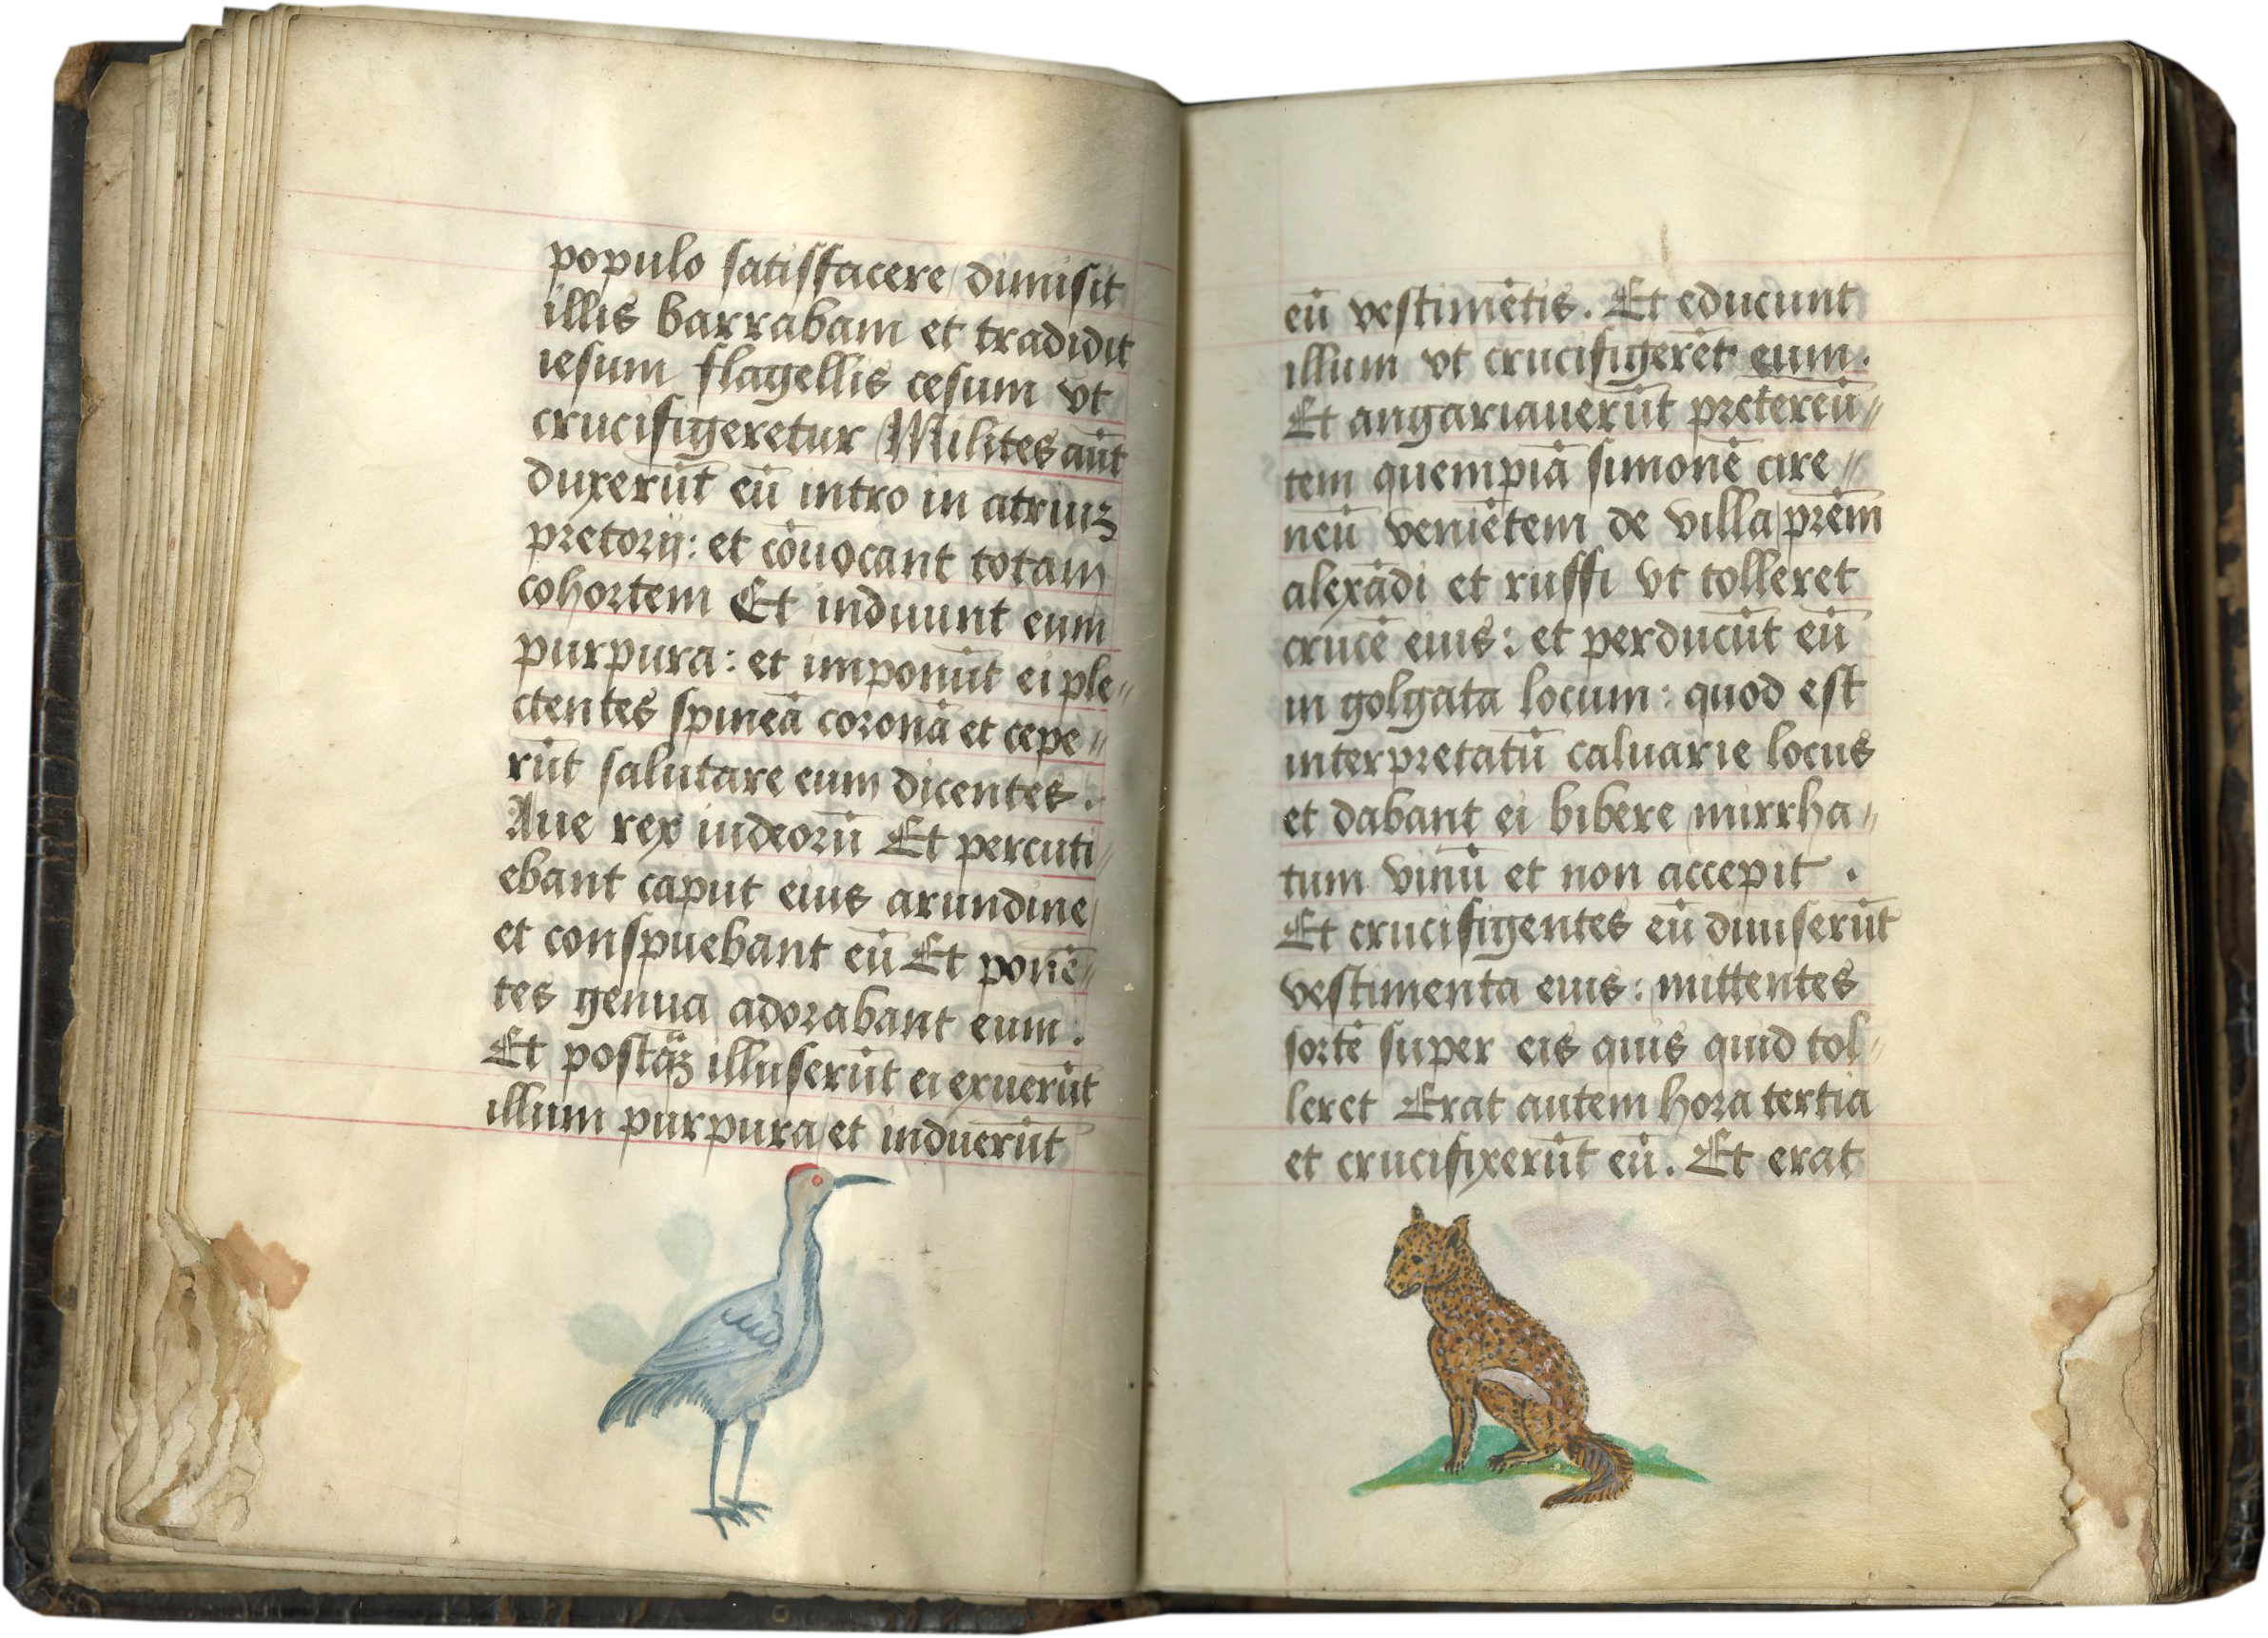 populo satisfacere dimisit
illis barrabam et tradidit
iesum flagellis cesum vt
crucifigeretur Milites aūt
duxerūt eū intro in atriuʒ
pretorij: et cōuocant totam
cohortem Et induunt eum
purpura: et imponūt ei ple〃
ctentes spineā coronā et cepe〃
rūt salutare eum dicentes.
Aue rex iudeorū Et percuti〃
ebant caput eius arundine
et conspuebant eū Et ponē〃
tes genua adorabant eum.
Et postq̄ʒ illuserūt ei exuerūt
illum purpura et induerūt
eū vestimētis. Et educunt
illum vt crucifigerēt eum.
Et angariauerūt pretereū〃
tem quempiā simonē cire〃
neū veniētem de villa prēm
alexādi et ruffi vt tolleret
crucē eius: et perducūt eū
in golgata locum: quod est
interpretatū caluarie locus
et dabant ei bibere mirrha〃
tum vinū et non accepit.
Et crucifigentes eū diuiserūt
vestimenta eius: mittentes
sortē super eis quis quid tol〃
leret Erat autem hora tertia
et crucifixerūt eū. Et erat